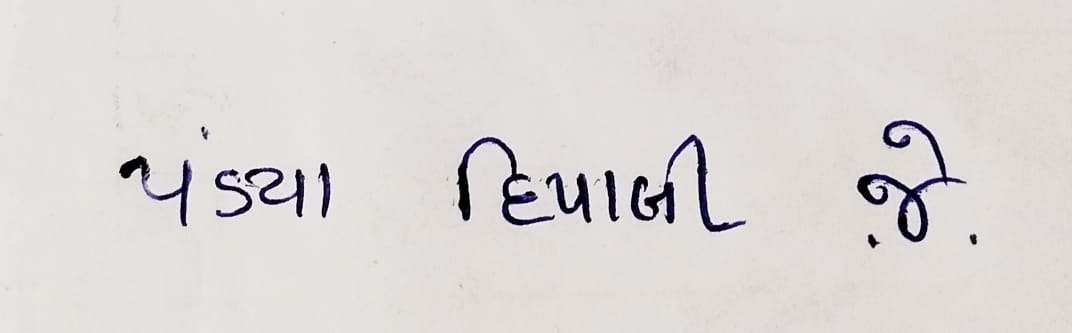 પંડયા દિપાલી જે.